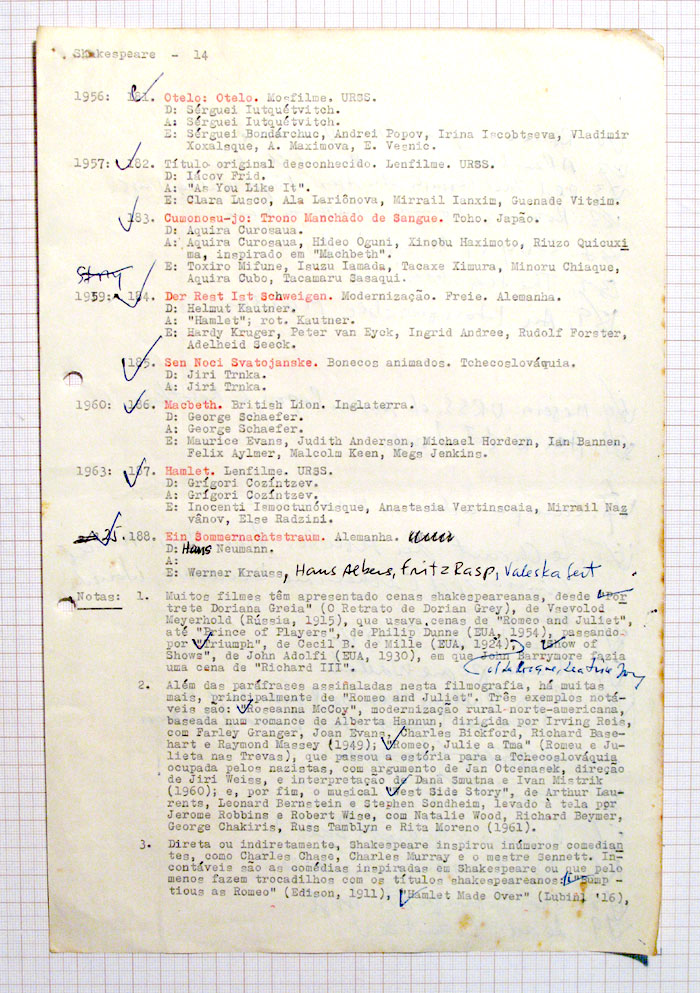 Shakespeare - 14
1956: 181. Otelo: Otelo. Mosfilme. URSS.
D: Sérguei Iutquétvitch.
A: Sérguei Iutquétvitch.
E: Sérguei Bondárchuc, Andrei Popov, Irina Iscobtseva, Vladimir
Xoxalsque, A. Maximova, E. Vesnic.
1957: 182. Título original desconhecido. Lenfilme. URSS.
D: Iácov Frid.
A: "As You Like It".
E: Clara Lusco, Ala Lariônova, Mirrail Ianxim, Guenade Viteim.
183. Cumonosu-jo: Trono Manchado de Sangue. Toho. Japão.
D: Aquira Curosaua.
A: Aquira Curosaua, Hideo Oguni, Xinobu Haximoto, Riuzo Quicuxi
ma, inspirado em "Machbeth".
E: Toxiro Mifune, Isuzu Iamada, Tacaxe Ximura, Minoru Chiaque,
Aquira Cubo, Tacamaru Sasaqui.
1959: 184. Der Rest Ist Schweigen. Modernização. Freie. Alemanha.
D: Helmut Kautner.
A: "Hamlet"; rot. Kautner.
E: Hardy Kruger, Peter van Eyck, Ingrid Andree, Rudolf Forster,
Adelheid Seeck.
185. Sen Noci Svatojanske. Bonecos animados. Tchecoslováquia.
D: Jiri Trnka.
A: Jiri Trnka.
1960: 186. Macbeth. British Lion. Inglaterra.
D: George Schaefer.
A: George Schaefer.
E: Maurice Evans, Judith Anderson, Michael Hordern, Ian Bannen,
Felix Aylmer, Malcolm Keen, Megs Jenkins.
1963: 187. Hamlet. Lenfilme. URSS.
D: Grígori Cozíntzev.
A: Grígori Cozíntzev.
E: Inocenti Ismoctunóvisque, Anastasia Vertinscaia, Mirrail Naz
vânov, Else Radzini.
25. 188. Ein Sommernachtstraum. Alemanha.
D: Hans Neumann.
A:
E: Werner Krauss, Hans Albers, Fritz Rasp, Valeska Gert
Notas: 1. Muitos filmes têm apresentado cenas shakespeareanas, desde "Por
trete Doriana Greia" (O Retrato de Dorian Grey), de Vsevolod
Meyerhold (Rússia, 1915), que usava cenas de "Romeo and Juliet",
até "Prince of Players", de Philip Dunne (EUA, 1954), passando
por "Triumph", de Cecil B. de Mille (EUA, 1924), e "Show of
Shows", de John Adolfi (EUA, 1930), em que John Barrymore fazia
uma cena de "Richard III".
2. Além das paráfrases assiñaladas nesta filmografia, há muitas
mais, principalmente de "Romeo and Juliet". Três exemplos notá-
veis são: "Roseanna McCoy", modernização rural norte-americana,
baseada num romance de Alberta Hannun, dirigida por Irving Reis,
com Farley Granger, Joan Evans, Charles Bickford, Richard Base-
hart e Raymond Massey (1949); "Romeo, Julie a Tma" (Romeu e Ju-
lieta nas Trevas), que passou a estória para a Tchecoslováquia
ocupada pelos nazistas, com argumento de Jan Otcenasek, direção
de Jiri Weiss, e interpretação de Dana Smutna e Ivan Mistrik
(1960); e, por fim, o musical "West Side Story", de Arthur Lau-
rents, Leonard Bernstein e Stephen Sondheim, levado à tela por
Jerome Robbins e Robert Wise, com Natalie Wood, Richard Beymer,
George Chakiris, Russ Tamblyn e Rita Moreno (1961).
3. Direta ou indiretamente, Shakespeare inspirou inúmeros comedian
tes, como Charles Chase, Charles Murray e o mestre Sennett. In-
contáveis são as comédias inspiradas em Shakespeare ou que pelo
menos fazem trocadilhos com os títulos shakespeareanos: ump -
tious as Romeo" (Edison, 1911), "Hamlet Made Over" (Lubin, '16),